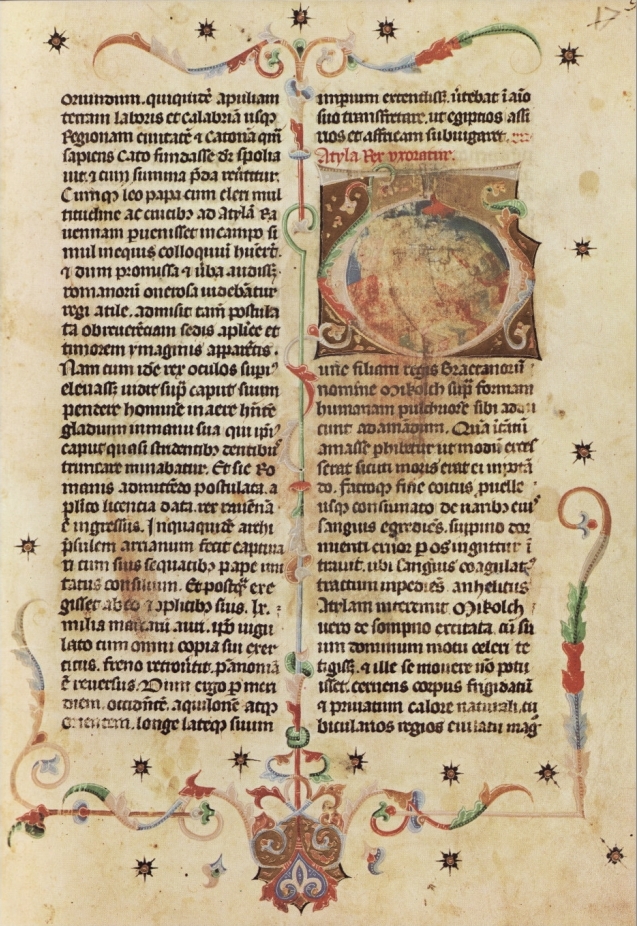 17
oriundum. quiquitē apuliam
terram laboris et calabriā usqȝ
Regionam ciuitatē ⁊ Catonā qm̄
sapiens Cato fundasse dr̄ spolia
uit. ⁊ cum summa p̄da reūtitur.
Cumqȝ leo papa cum cleri mul
titudine ac ciuibȝ ad Atylā Ra
uennam ꝑuenisset in campo si
mul in equis colloquiū hūerūt.
⁊ dum promissa ⁊ ūba audissȝ
romanorū onerosa uidebātur
regi atile. admisit tam̄ postula
ta ob reuerēciam sedis aplice et
timorem ymaginis apparētis.
Nam cum ide rex oculos supi
eleuassȝ uidit sup̄ caput suum
pendere hominē in aere hn̄tē
gladium in manu sua qui ip̄i
caput quasi stridentibȝ dentibȝ
truncare minabatur. Et sic Ro
manis admittēdo postulata. a
plico licencia data. rex rauēnā
ē ingressus. In qua quidē archi
p̄sulem arrianum fecit captiua
ri cum suis sequacibȝ pape īui
tatus consilium. Et postqȝ exe
gisset ab eo ⁊ aplicibȝ suis. lx.
milia marcarū auri. ip̄o iugu
lato cum omni copia sui exer
citus. freno retroūtit. panoniā
ē reuersus. Dum ergo ꝑ meri
diem. occidētē. aquilonē atqȝ
orientem. longe lateqȝ suum
imperium extendissȝ. ūtebat ī aīo
suo transfretare. ut egiptios assi
rios et affricam subiugaret.
Atyla Rex uxoratur.
unc filiam regis Bractanorū
nomine Mikolch sup̄ formam
humanam pulchriorē sibi addu
cunt ad amandum. Quā ītātū
amasse ꝑhibetur ut modū exces
serat sicuti moris erat ei ī potā
do. Factoqȝ fine coitus puelle
usqȝ consumato de naribȝ eiȝ
sanguis egrediēs. supino dor
mienti cruor ꝑ os in guttur ī
trauit. ubi sanguis coagulatȝ
tractum inpediēs anhelitus
Atylam interemit Mikolch
uero de sompno excitata. cū su
um dominum motu celeri te
tigissȝ. ⁊ ille se mouere nō potu
isset. cernens corpus frigidatū
⁊ priuatum calore naturali. cu
bicularios regios eiulatu mag